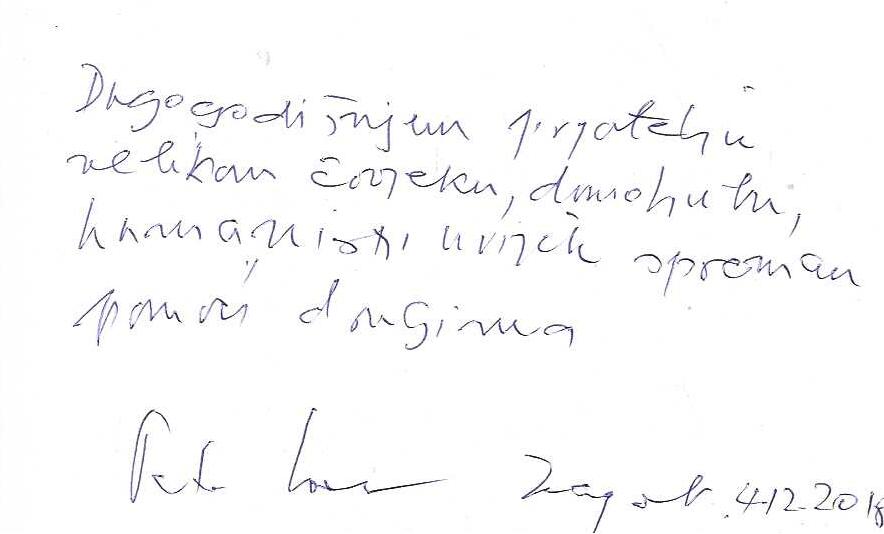 Dugogodišnjem prijatelju
velikom čovjeku, domoljubu,
humanisti uvijek spreman
pomoći drugima
Zagreb 4.12.2018